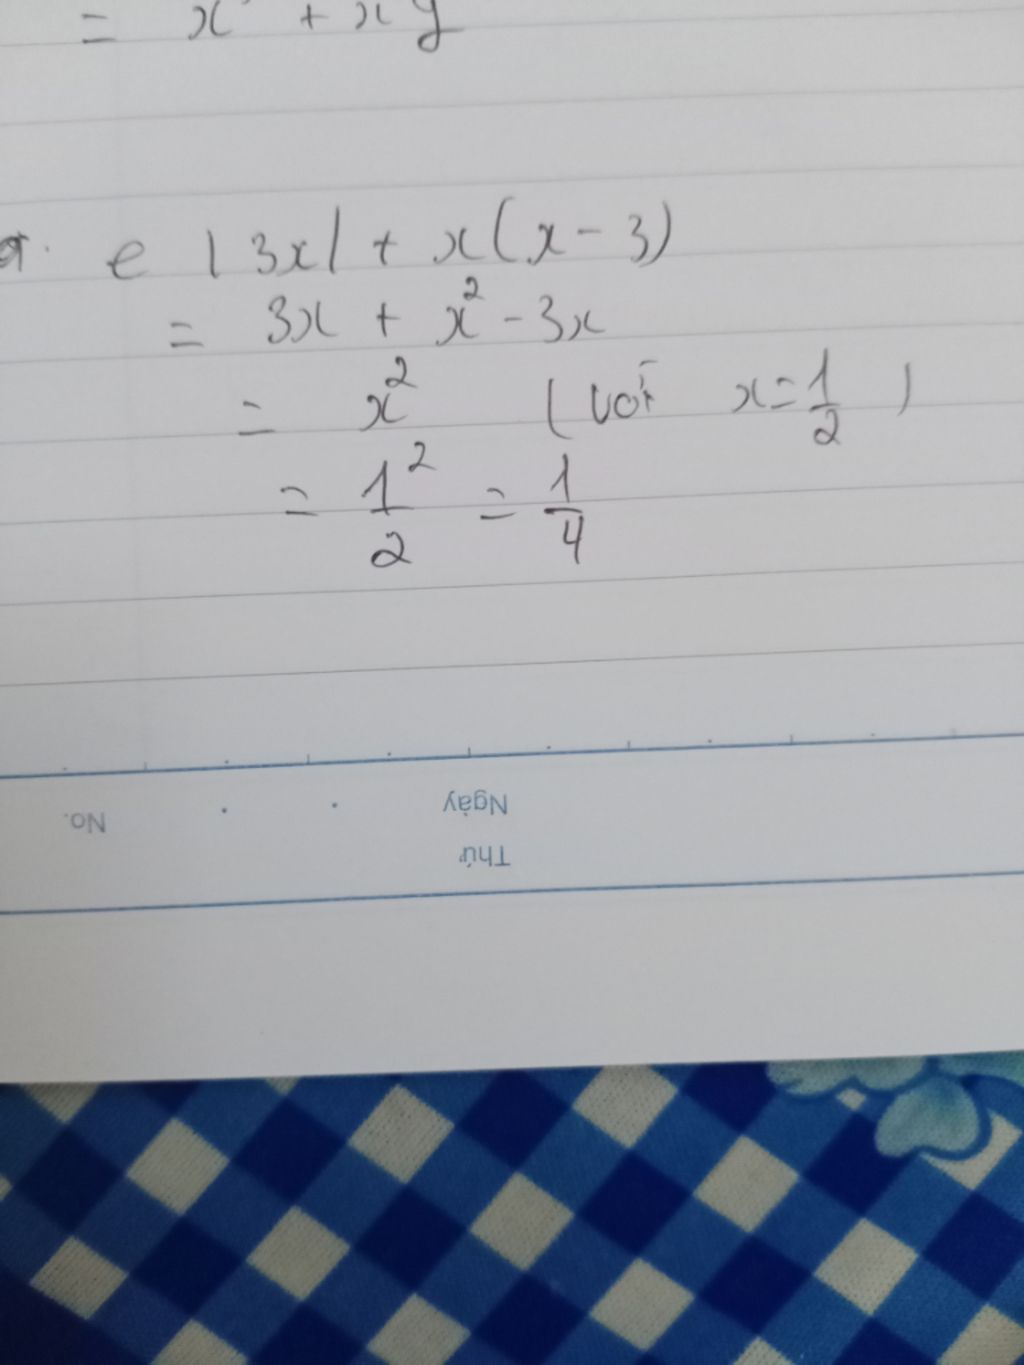 = x² + xy
e |3x| + x(x - 3)
= 3x + x² - 3x
= x² (với x = 1/2)
= 1²/2 = 1/4
No. Ngày
Thứ